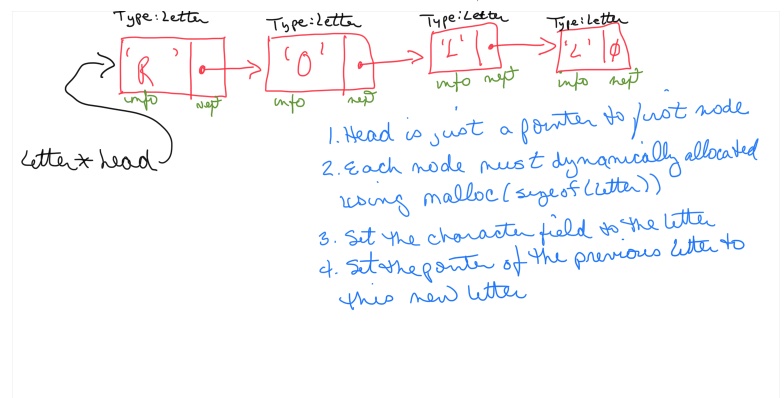 Type:Letter Type:Letter Type:Letter Type:Letter
'R' 'O' 'L' 'L' ϕ
info next info next info next info next
Letter* head
1. Head is just a pointer to first node
2. Each node must dynamically allocated
using malloc(sizeof(Letter))
3. Set the character field to the letter
4. Set the pointer of the previous letter to
this new letter